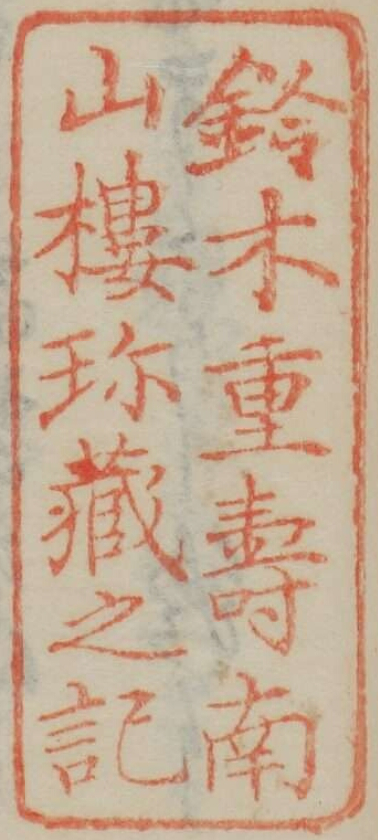 鈴木重壽南
山樓珎藏之記